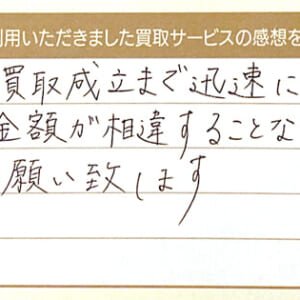 利用いただきました買取サービスの感想を
買取成立まで迅速に
金額が相違することな
願い致します